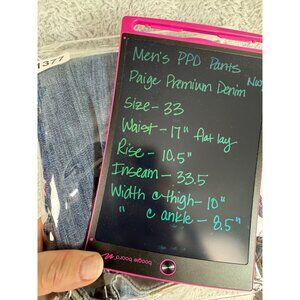 1377
Men's PPD Pants
NWOT
Paige Premium Denim
Size - 33
Waist - 17" flat lay
Rise - 10.5"
Inseam - 33.5
Width @ thigh - 10"
" @ ankle - 8.5"
boogie board